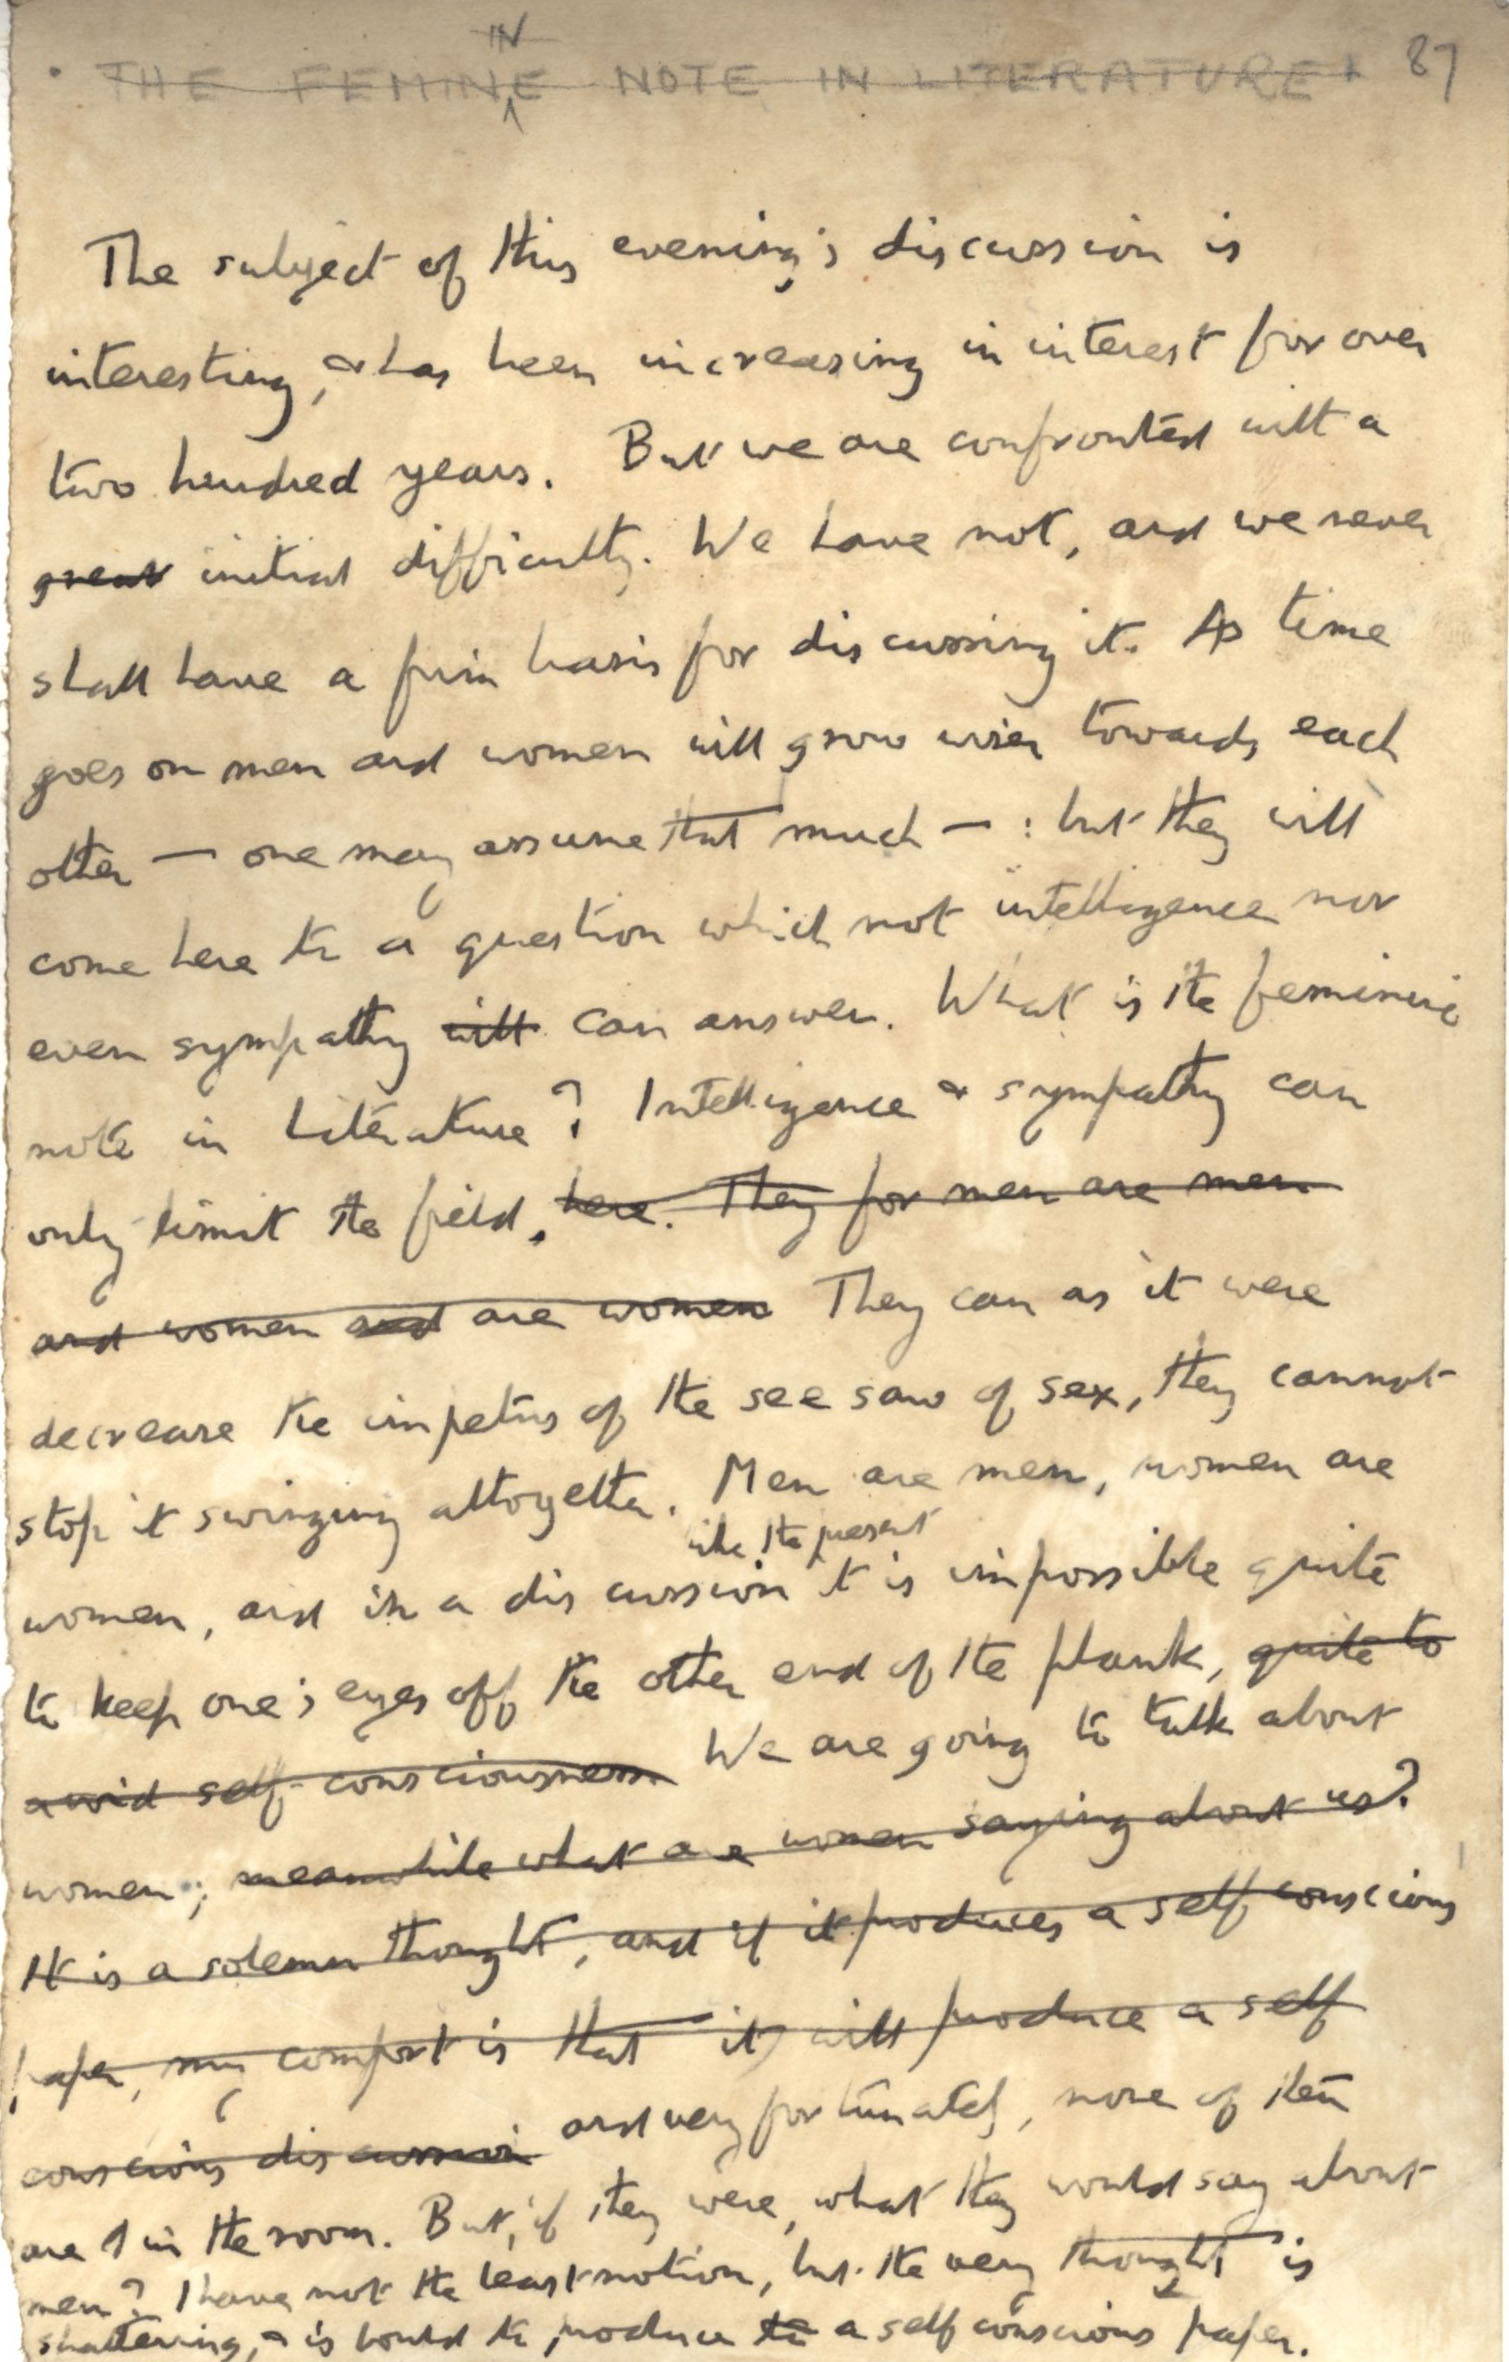 THE FEMINE NOTE IN LITERATURE 87
IN
The subject of this evening's discussion is
interesting, & has been increasing in interest for over
two hundred years. But we are confronted with a
great initial difficulty. We have not, and we never
shall have a firm basis for discussing it. As time
goes on men and women will grow wiser towards each
other — one may assume that much — : but they will
come here to a question which not intelligence nor
even sympathy will can answer. What is the feminine
note in Literature? Intelligence & sympathy can
only limit the field, here. They for men are men
and women and are women They can as it were
decrease the impetus of the see saw of sex, they cannot
stop it swinging altogether. Men are men, women are
like the present
women, and in a discussion it is impossible quite
to keep one's eyes off the other end of the plank, quite to
avoid self-consciousness. We are going to talk about
women; meanwhile what are women saying about us?
It is a solemn thought, and if it produces a self conscious
paper, my comfort is that it will produce a self
conscious discussion and very fortunately, none of them
are in the room. But, if they were, what they would say about
men? I have not the least notion, but the very thought is
shattering, & is bound to produce to a self conscious paper.